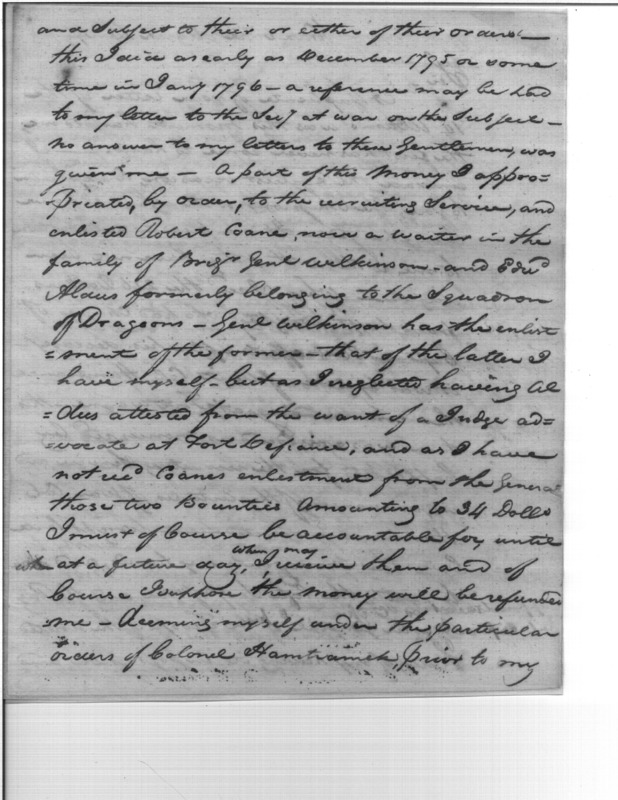 and Subject to their or either of their orders —
this I did as early as December 1795 or some
time in Jany 1796 — a reference may be had
to my letter to the Secy at war on the Subject —
no answer to my letters to these Gentlemen, was
given me — A part of this Money I appro=
=priated, by order, to the recruiting Service, and
enlisted Robert Coane, now a waiter in the
family of Brigr Genl Wilkinson — and Edwd
Aldus formerly belonging to the Squadron
of Dragoons — Genl Wilkinson has the enlist
=ment of the former — that of the latter I
have myself — but as I neglected having Al
=dus attested from the want of a Judge ad=
=vocate at Fort Defiance, and as I have
not recd Coanes enlistment from the General
those two Bounties Amounting to 34 Dolls
I must of Course be accountable for, until
at a future day, when I may receive them and of
Course I suppose the money will be refunded
me — deeming myself under the particular
orders of Colonel Hamtramck, prior to my